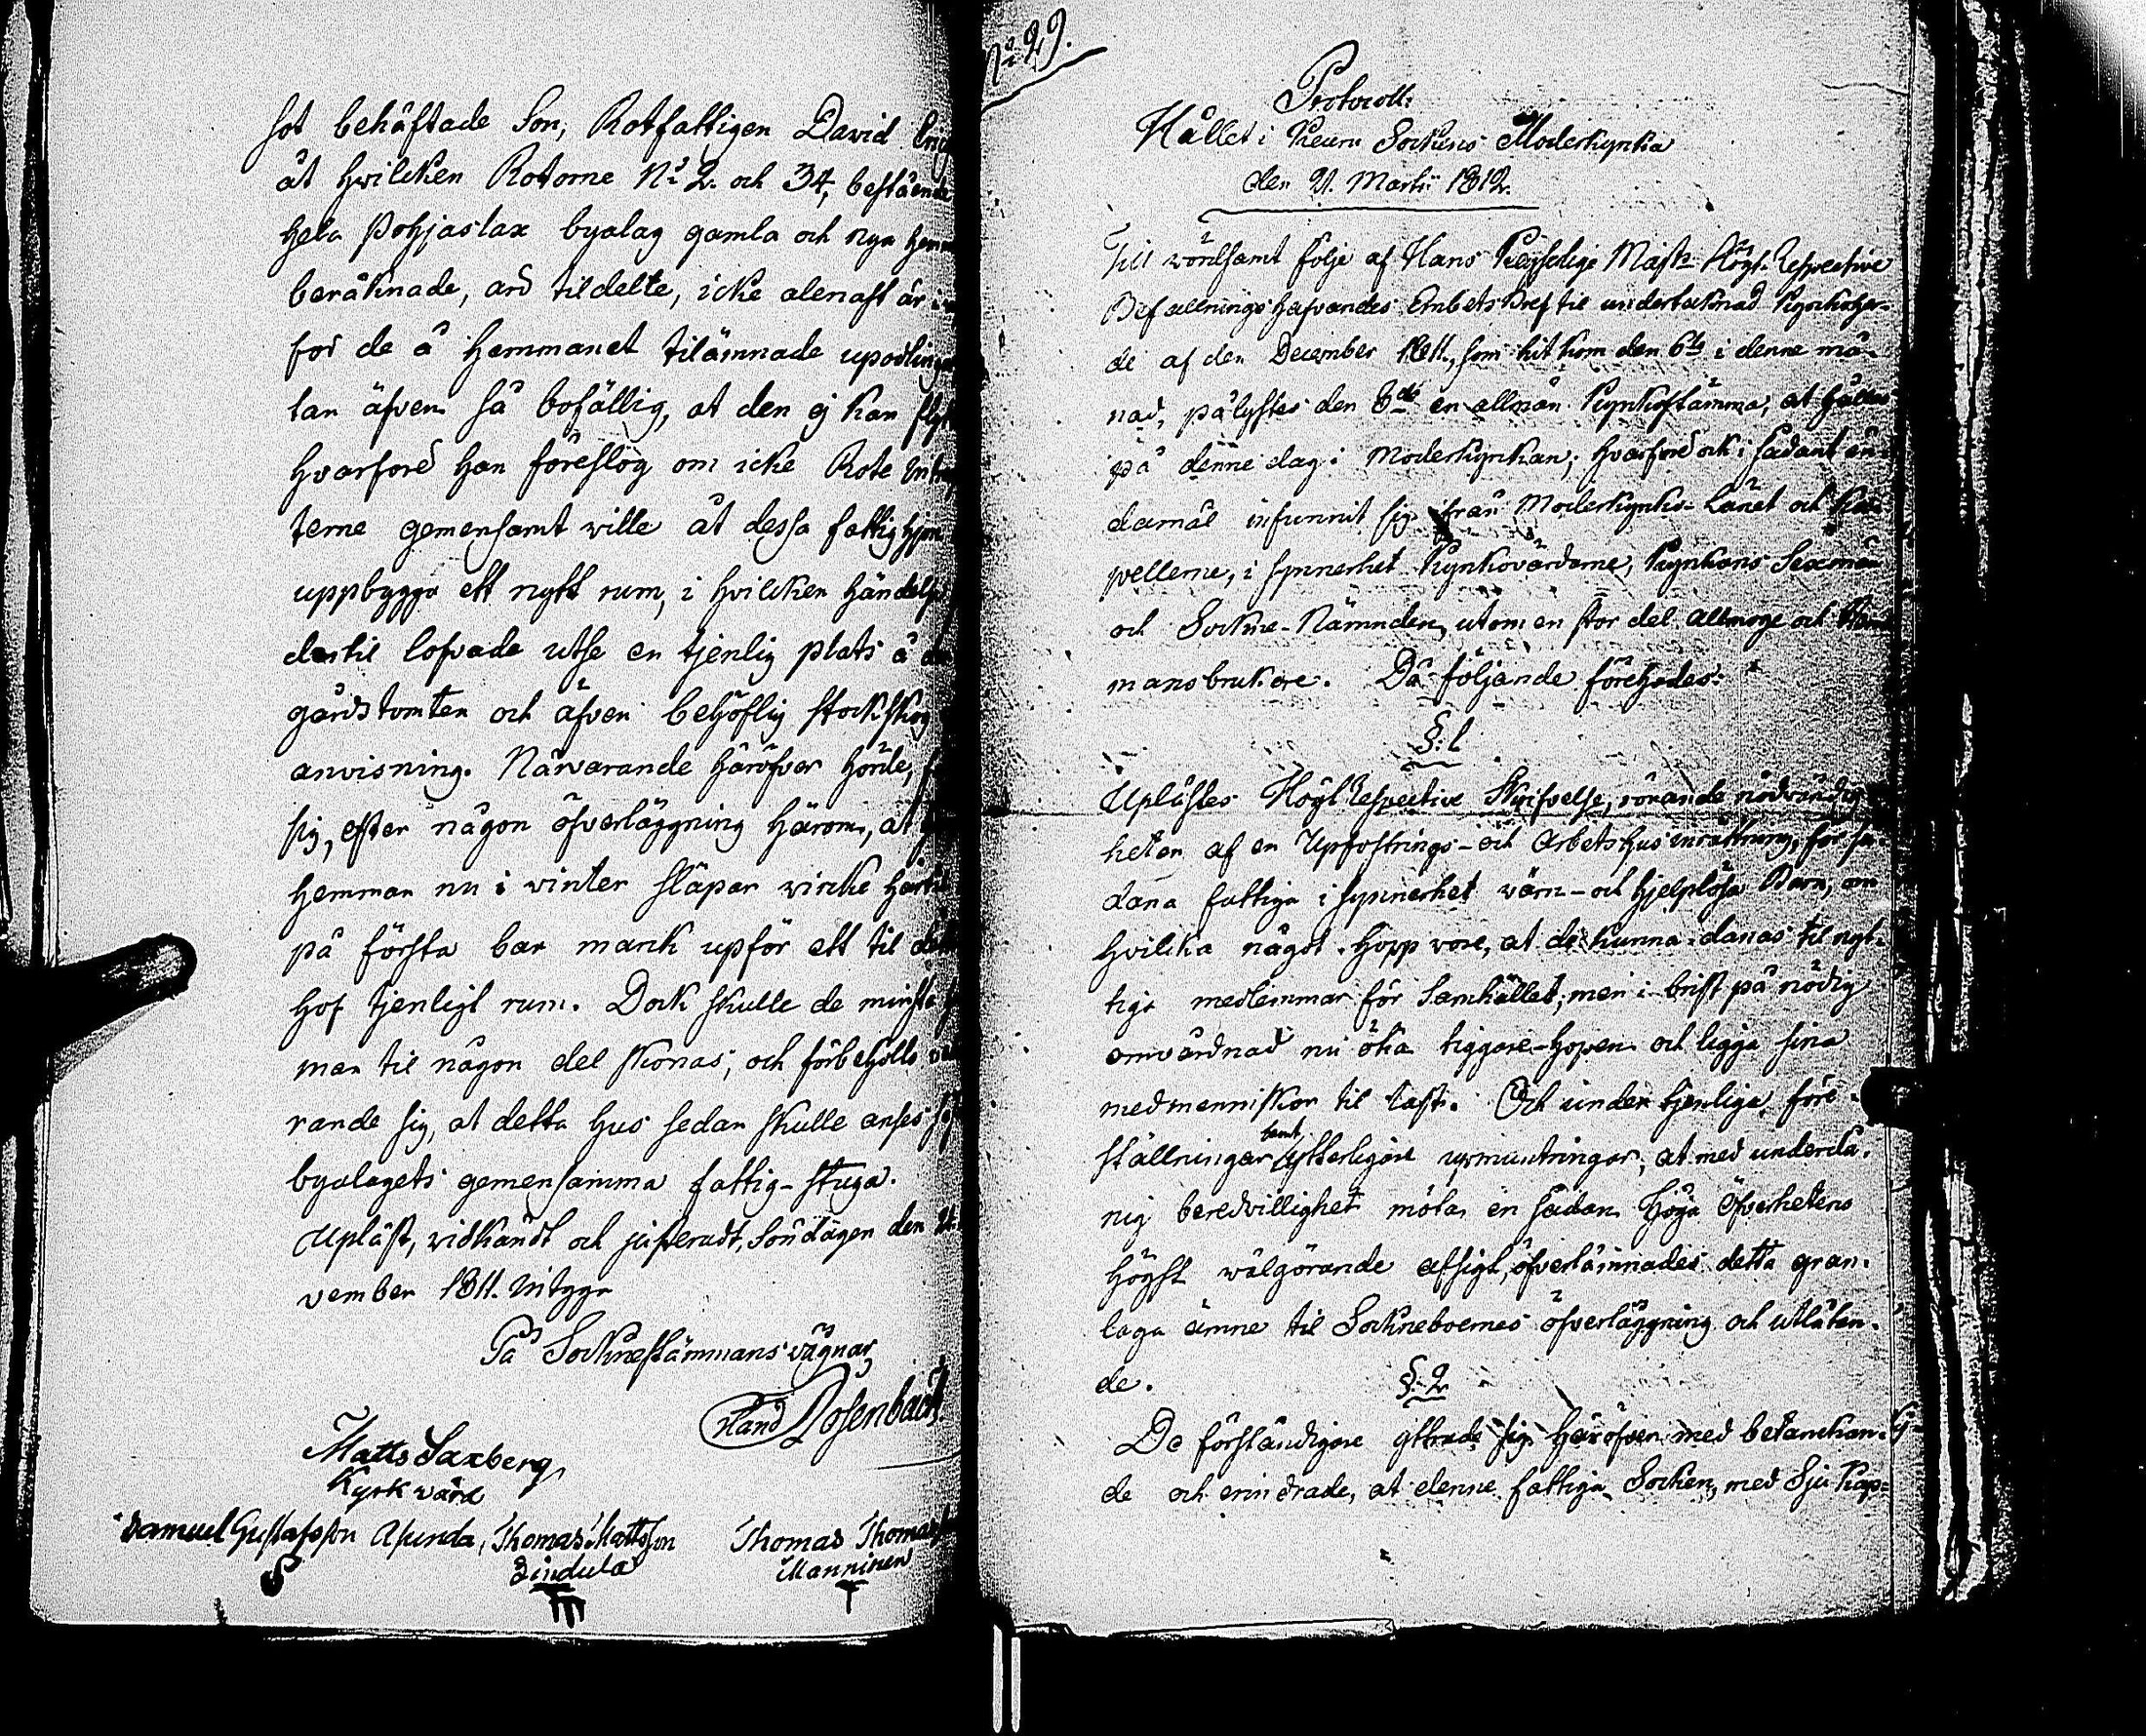 sot behäftade Son, Rotfattigen David
åt hvilcken Rotorne N:o 2. och 34, bestående
hela Pohjaslax byalag gamla och nya
beräknade, ard tildelte, icke alenast är
för de å hemmanet tilämnade upodlingar
tan äfven så bofällig, at den ej kan
hvarföre han föreslog om icke Rote
terne gemensamt wille åt dessa fattighjon
uppbygga ett nytt rum, i hvilcken händelse
dertil lofvade utse en tjenlig plats å
gårdstomten och äfven behöflig stockskog
anvisning. Närvarande häröfver hörde,
sig, efter någon öfverläggning härom, at
hemman nu i winter släpar wircke härtil
på första bar marck upför ett til
hof tjenligt rum. Dock skulle de minsta
man til någon del skonas, och förbehölls
rande sig, at detta hus sedan skulle anses
byalagets gemensamma fattig-stuga.
Upläst, vidkändt och justeradt, Söndagen den
vember 1811. intyga
På Socknestämmans vägnar
Rosenback
Matts Saxberg
Kyrkvärd
Samuel Gustafsson Asunda, Thomas Mattsson Thomas
Zindula Manninen
N:o 29.
Protocoll
Hållet i Keuru Sockens Moderkyrka
den 21. Martii 1812.
Till vördsamt följe af Hans Kejserlige Majts Högl. Respective
Befallningshafvandes Embets Bref til undertecknad Kyrkoher-
de af den December 1811, som hit kom den 6te i denne må-
nad, pålystes den 8de en allmän Kyrkostämma, at hållas
på denne dag i Moderkyrkan; hvarföre ock i sådant än-
damål infunnit sig ifrån Moderkyrko-Länet och Ka-
pellerne, i synnerhet Kyrkovärdarne, Kyrkans Sexmän
och Sockne-Nämnden, utom en stor del allmoge och
mansbrukare. Då följande förehades:
§. 1
Uplästes Högl. Respective Skrifvelse, rörande nödvändig-
heten af en Upfostrings- och Arbetshus inrättning, för så-
dana fattiga i synnerhet värn- och hjelplösa Barn, om
hvilcka något hopp vore, at de kunna danas til nyt-
tiga medlemmar för Samhället, men i brist på nödig
omvårdnad nu öka tiggare-hopen och ligga sina
medmenniskor til last. Och under tjenliga före-
ställningar samt ytterligare upmuntringar, at med underdå-
nig beredvillighet möta en sådan höga Öfverhetens
högst wälgörande afsigt, öfverlämnades detta gran-
laga ämne til Sockneboernes öfverläggning och utlåtan-
de.
§. 2
De förståndigare yttrade sig häröfver med betänckan-
de och erindrade, at denne fattiga Socken, med Sju Kap-